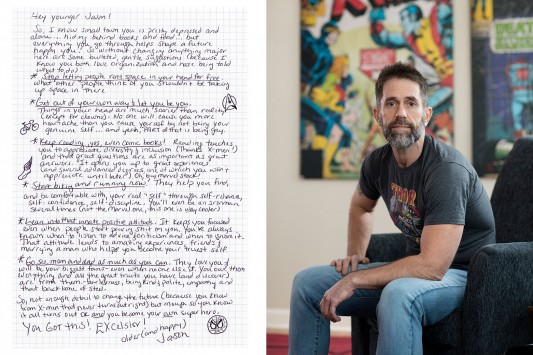 Hey younger Jason!
So, I know small town you is pretty depressed and
alone... hiding behind books and food... but
everything you go through helps shape a future
happy you. So without changing anything major
here are some bulleted, gentle suggestions (because I
know you both love organization and hate being told
what to do):
* Stop letting people rent space in your head for free
what other people think of you shouldn't be taking
up space in there
* Get out of your own way & let you be you.
Things in your head are much scarier than reality
(except for clowns). No one will cause you more
heartache than you cause yourself by not being your
genuine self... and yeah, part of that is being gay.
* Keep reading, yes, even comic books! Reading teaches
you to appreciate diversity & inclusion (Thanks X-men!)
and that great questions are as important as great
answers. It opens you up to great experiences
(and several advanced degrees, all of which you won't
appreciate until later). Oh, buy marvel stock!
* Start biking and running now! They help you find,
and be comfortable with, your real "self" through self-reliance,
self-confidence, self-discipline. You'll even be an ironman
several times (not the marvel one, this one is way cooler)
* Lean into that innate positive attitude. It keeps you focused
even when people start pouring shit on you. You've always
known when to listen to advice/criticism and when to ignore it.
That attitude leads to amazing experiences, friends &
marrying a man who helps you become your truest self
* Go see mom and dad as much as you can. They love you &
will be your biggest fans - even when no one else is. You owe them
everything and all the great traits you have (and discover)
are from them - bardness, being kind, polite, ungrumpy and
that back bone of steel.
So, not enough detail to change the future (because you know
from X-men that never turns out right) but enough so you know
it all turns out OK and you become your own super hero.
You Got This! Excelsior!
older (and happy)
Jason
THOR